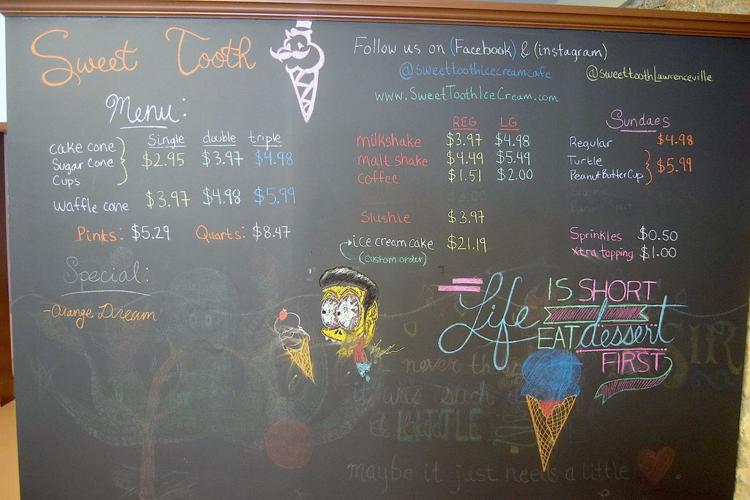 Sweet Tooth
Follow us on (Facebook) & (instagram)
@sweettoothicecreamcafe @sweettoothLawrenceville
www.SweetToothIceCream.com
Menu:
Single double triple
cake cone
Sugar cone $2.95 $3.97 $4.98
Cups
Waffle cone $3.97 $4.98 $5.99
Pints: $5.29 Quarts: $8.47
Special:
-Orange Dream
REG LG
milkshake $3.97 $4.98
malt shake $4.49 $5.49
coffee $1.51 $2.00
Slushie $3.97
ice cream cake $21.19
(custom order)
Sundaes
Regular $4.98
Turtle
Peanut Butter Cup $5.99
Sprinkles $0.50
Xtra topping $1.00
Life IS SHORT
EAT dessert
FIRST
I never
was such
a LITTLE
maybe it just needs a little